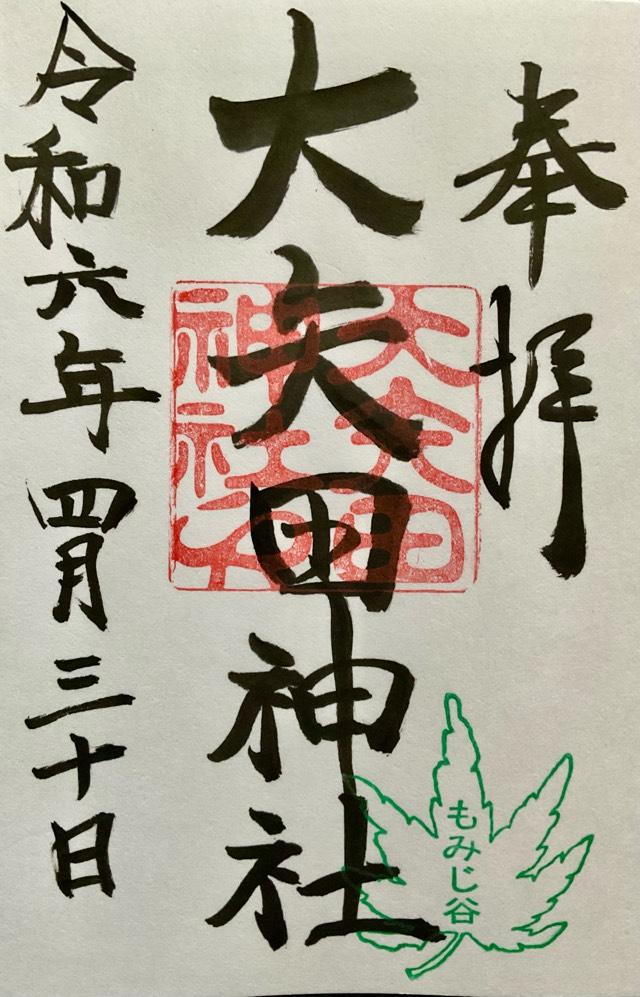 奉拝
大矢田神社
大矢田
神社
もみじ谷
令和六年四月三十日